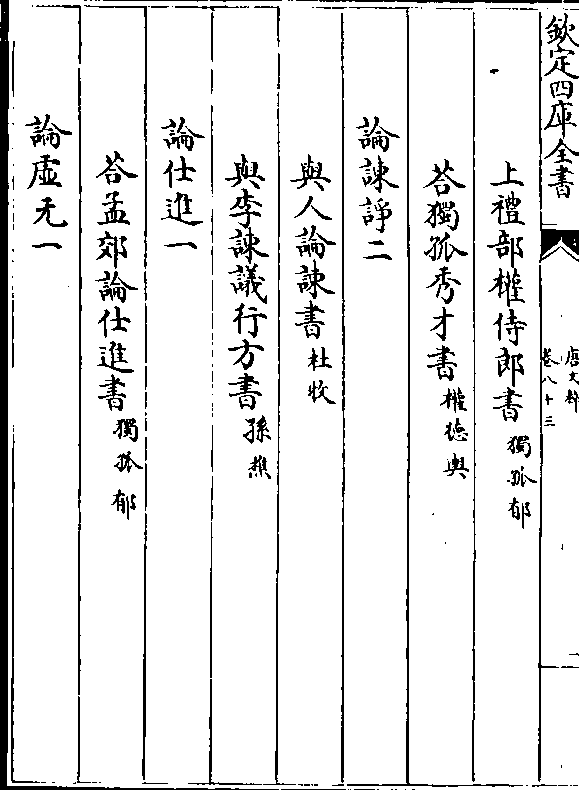 欽定四庫全書
唐文粹
卷八十三
一
上禮部權侍郎書 獨孤郁
荅獨孤秀才書 權徳輿
論諫諍二
與人論諫書 杜牧
與李諫議行方書 孫樵
論仕進一
荅孟郊論仕進書 獨孤郁
論虛无一